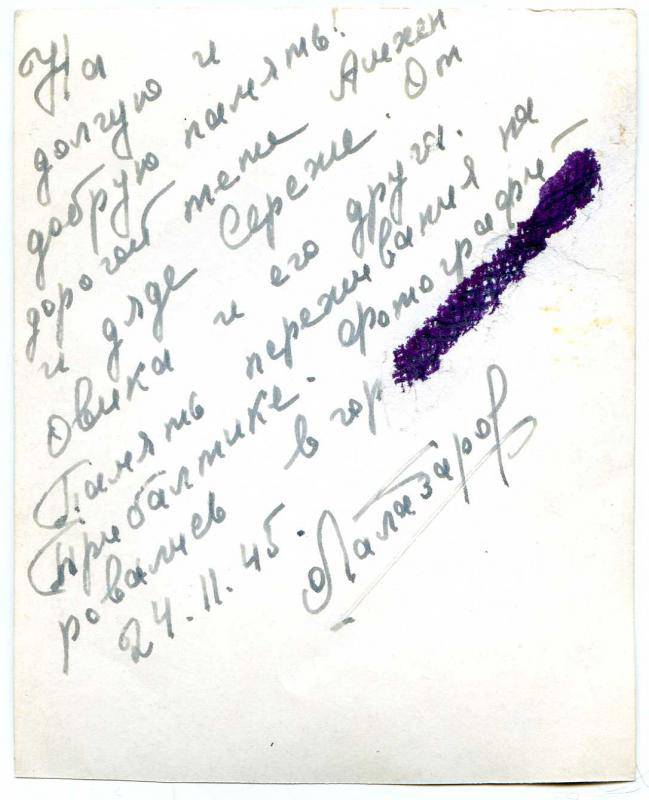 На
долгую и
добрую память!
дорогой тете Амхен
и дяде Сереже. От
Овика и его друга.
Память переживания на
Прибалтике. фотографи-
ровались в гор
24.11.45.
Лалазаров